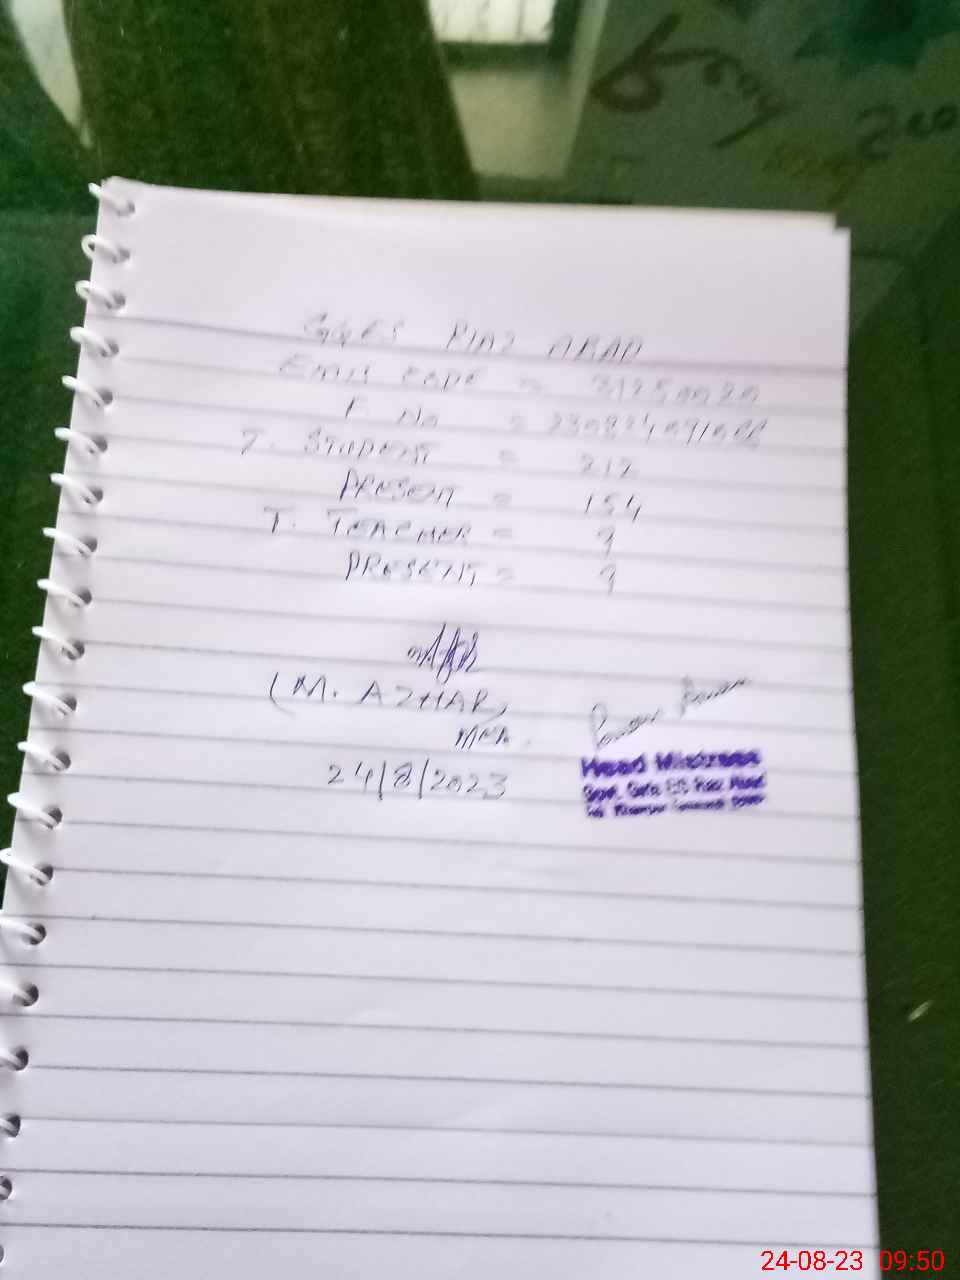 GGES RIAZ ABAD
EMIS CODE = 31250020
F. No =
T. STUDENT = 212
PRESENT = 154
T. TEACHER = 9
PRESENT = 9
(M. AZHAR)
MEA.
24/8/2023
Head Mistress
Govt. Girls E/S Riaz Abad
200
24-08-23 09:50